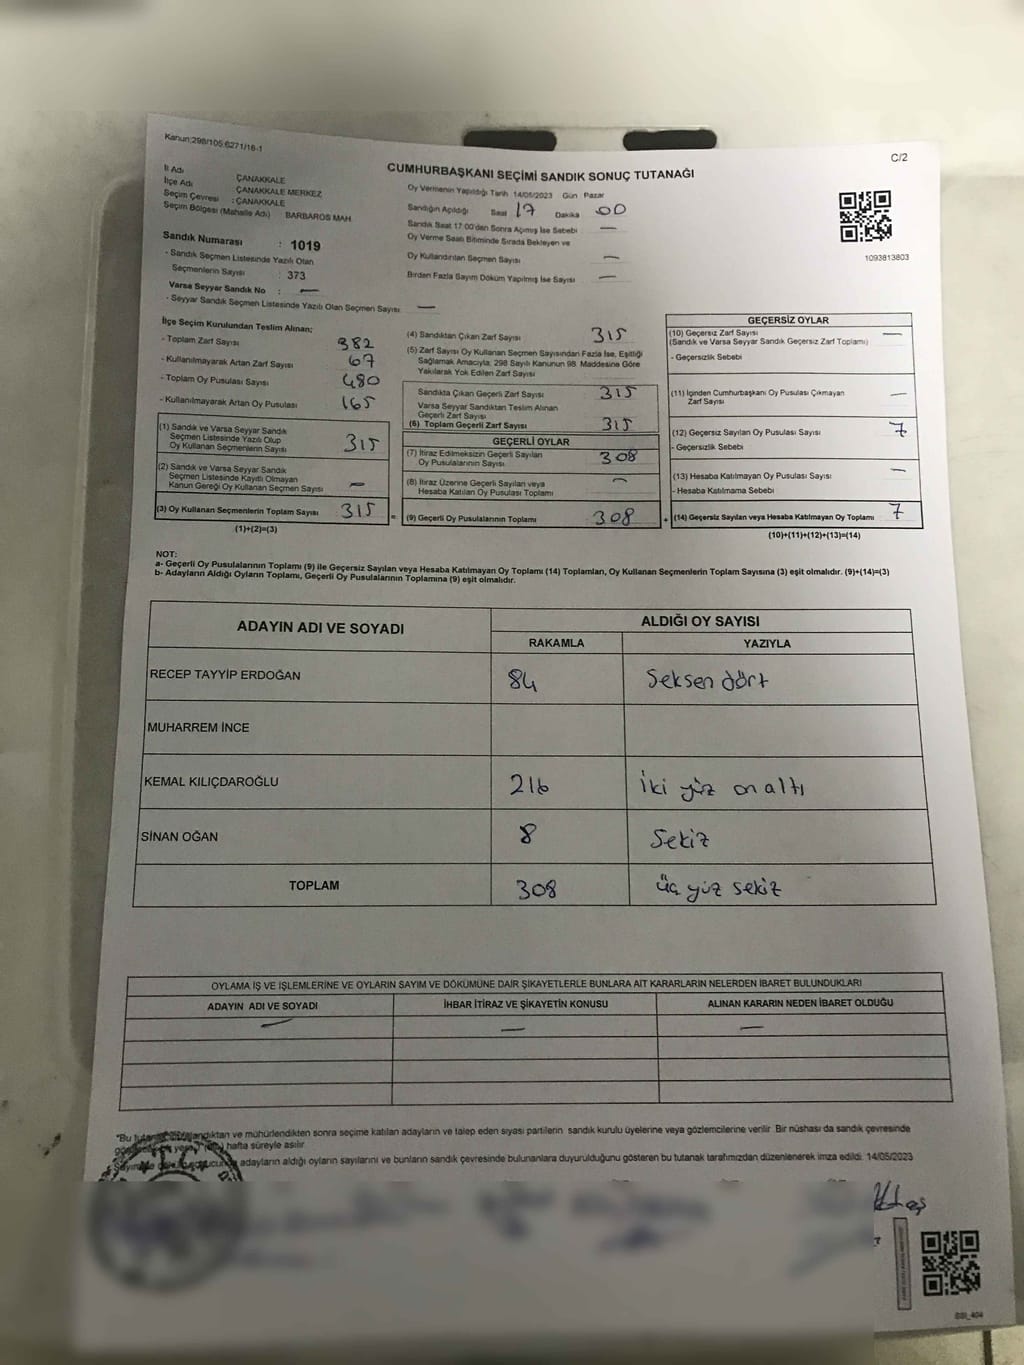 Kanun:298/105;6271/16-1
C/2
CUMHURBAŞKANI SEÇİMİ SANDIK SONUÇ TUTANAĞI
İl Adı ÇANAKKALE
İlçe Adı ÇANAKKALE MERKEZ
Seçim Çevresi : ÇANAKKALE
Seçim Bölgesi (Mahalle Adı) BARBAROS MAH.
Sandık Numarası : 1019
- Sandık Seçmen Listesinde Yazılı Olan
Seçmenlerin Sayısı : 373
Varsa Seyyar Sandık No : —
- Seyyar Sandık Seçmen Listesinde Yazılı Olan Seçmen Sayısı —
Oy Vermenin Yapıldığı Tarih 14/05/2023 Gün Pazar
Sandığın Açıldığı Saat 17 Dakika 00
Sandık Saat 17:00'den Sonra Açımış İse Sebebi —
Oy Verme Saati Bitiminde Sırada Bekleyen ve
Oy Kullandırılan Seçmen Sayısı —
Birden Fazla Sayım Döküm Yapılmış İse Sayısı —
1093813803
İlçe Seçim Kurulundan Teslim Alınan;
- Toplam Zarf Sayısı 382
- Kullanılmayarak Artan Zarf Sayısı 67
- Toplam Oy Pusulası Sayısı 480
- Kullanılmayarak Artan Oy Pusulası 165
(1) Sandık ve Varsa Seyyar Sandık
Seçmen Listesinde Yazılı Olup
Oy Kullanan Seçmenlerin Sayısı 315
(2) Sandık ve Varsa Seyyar Sandık
Seçmen Listesinde Kayıtlı Olmayan
Kanun Gereği Oy Kullanan Seçmen Sayısı —
(3) Oy Kullanan Seçmenlerin Toplam Sayısı 315 =
(1)+(2)=(3)
(4) Sandıktan Çıkan Zarf Sayısı 315
(5) Zarf Sayısı Oy Kullanan Seçmen Sayısından Fazla İse, Eşitliği
Sağlamak Amacıyla; 298 Sayılı Kanunun 98. Maddesine Göre
Yakılarak Yok Edilen Zarf Sayısı
Sandıkta Çıkan Geçerli Zarf Sayısı 315
Varsa Seyyar Sandıktan Teslim Alınan
Geçerli Zarf Sayısı
(6) Toplam Geçerli Zarf Sayısı 315
GEÇERLİ OYLAR
(7) İtiraz Edilmeksizin Geçerli Sayılan
Oy Pusulalarının Sayısı 308
(8) İtiraz Üzerine Geçerli Sayılan veya
Hesaba Katılan Oy Pusulası Toplamı —
(9) Geçerli Oy Pusulalarının Toplamı 308 +
GEÇERSİZ OYLAR
(10) Geçersiz Zarf Sayısı —
(Sandık ve Varsa Seyyar Sandık Geçersiz Zarf Toplamı)
- Geçersizlik Sebebi
(11) İçinden Cumhurbaşkanı Oy Pusulası Çıkmayan
Zarf Sayısı —
(12) Geçersiz Sayılan Oy Pusulası Sayısı 7
- Geçersizlik Sebebi
(13) Hesaba Katılmayan Oy Pusulası Sayısı —
- Hesaba Katılmama Sebebi
(14) Geçersiz Sayılan veya Hesaba Katılmayan Oy Toplamı 7
(10)+(11)+(12)+(13)=(14)
NOT:
a- Geçerli Oy Pusulalarının Toplamı (9) ile Geçersiz Sayılan veya Hesaba Katılmayan Oy Toplamı (14) Toplamları, Oy Kullanan Seçmenlerin Toplam Sayısına (3) eşit olmalıdır. (9)+(14)=(3)
b- Adayların Aldığı Oyların Toplamı, Geçerli Oy Pusulalarının Toplamına (9) eşit olmalıdır.
ADAYIN ADI VE SOYADI ALDIĞI OY SAYISI
RAKAMLA YAZIYLA
RECEP TAYYİP ERDOĞAN 84 Seksen dört
MUHARREM İNCE
KEMAL KILIÇDAROĞLU 216 İki yüz on altı
SİNAN OĞAN 8 Sekiz
TOPLAM 308 üç yüz sekiz
OYLAMA İŞ VE İŞLEMLERİNE VE OYLARIN SAYIM VE DÖKÜMÜNE DAİR ŞİKAYETLERLE BUNLARA AİT KARARLARIN NELERDEN İBARET BULUNDUKLARI
ADAYIN ADI VE SOYADI İHBAR İTİRAZ VE ŞİKAYETİN KONUSU ALINAN KARARIN NEDEN İBARET OLDUĞU
— — —
*Bu ve mühürlendikten sonra seçime katılan adayların ve talep eden siyasi partilerin sandık kurulu üyelerine veya gözlemcilerine verilir. Bir nüshası da sandık çevresinde
hafta süreyle asılır.
adayların aldığı oyların sayılarını ve bunların sandık çevresinde bulunanlara duyurulduğunu gösteren bu tutanak tarafımızdan düzenlenerek imza edildi. 14/05/2023